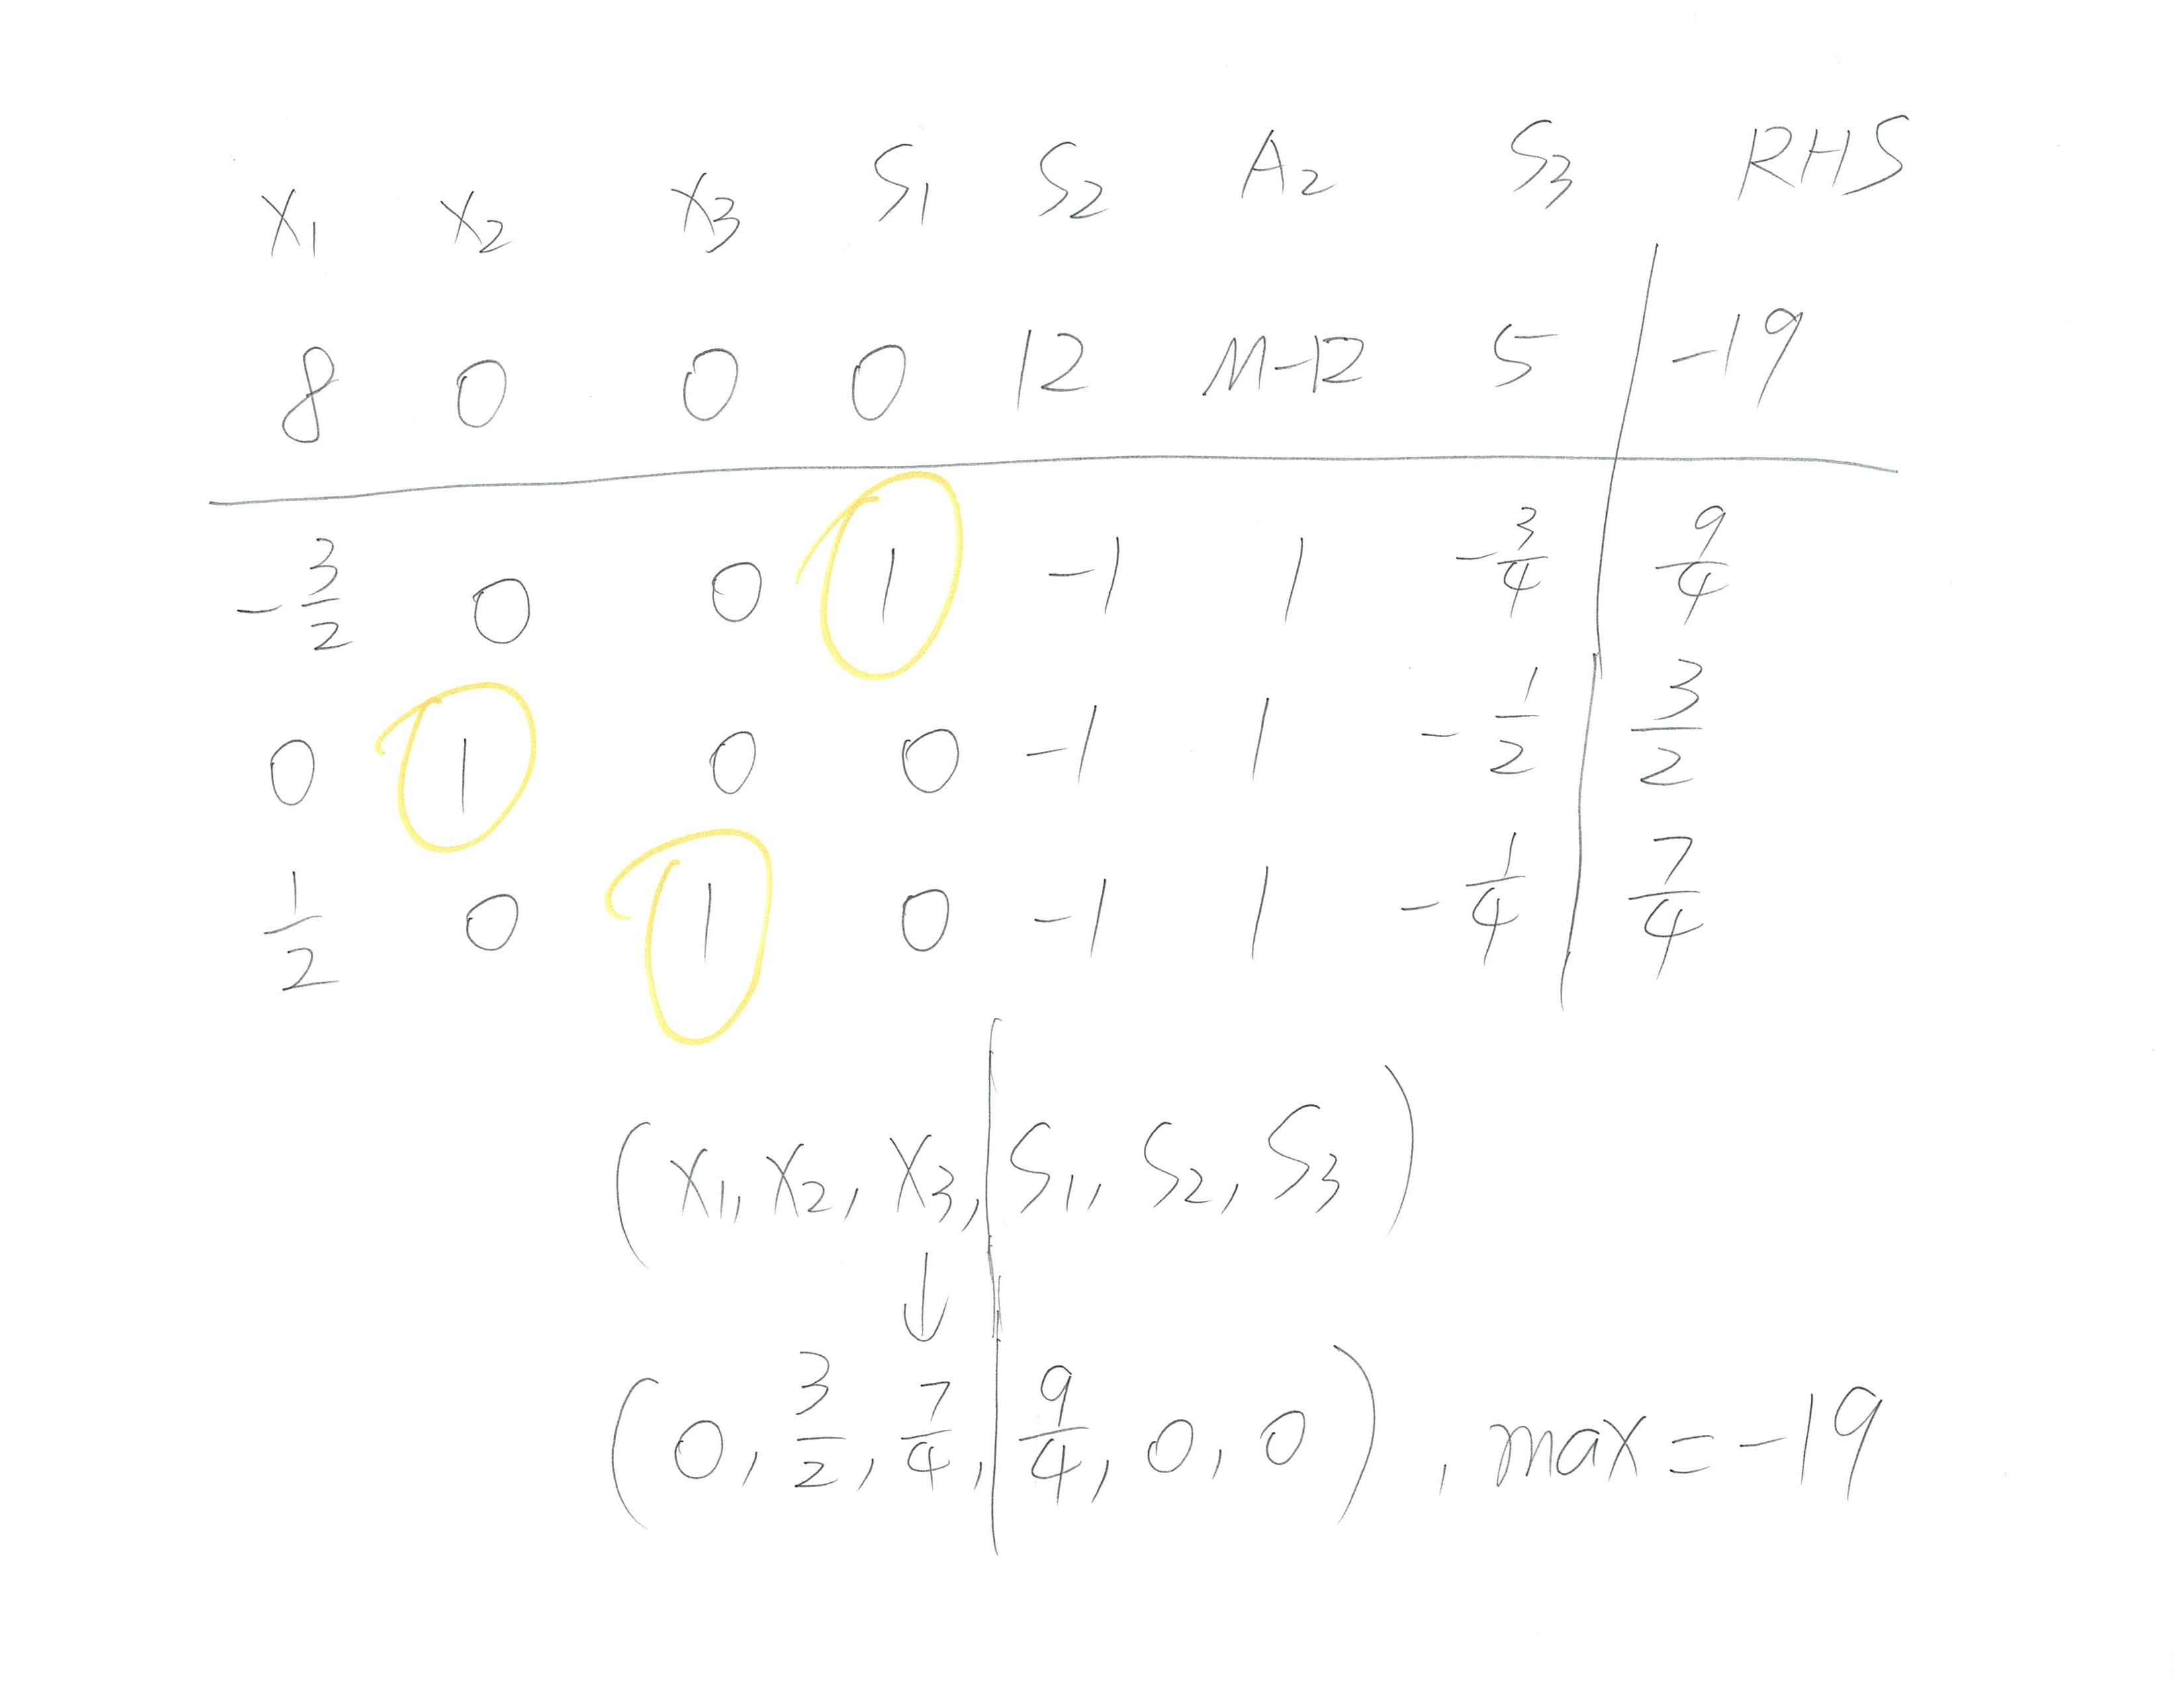 X₁ X₂ X₃ S₁ S₂ A₂ S₃ RHS
8 0 0 0 12 M-12 5 -19
-3/2 0 0 1 -1 1 -3/4 9/4
0 1 0 0 -1 1 -1/2 3/2
1/2 0 1 0 -1 1 -1/4 7/4
(X₁, X₂, X₃, | S₁, S₂, S₃)
↓
(0, 3/2, 7/4, | 9/4, 0, 0) , max = -19